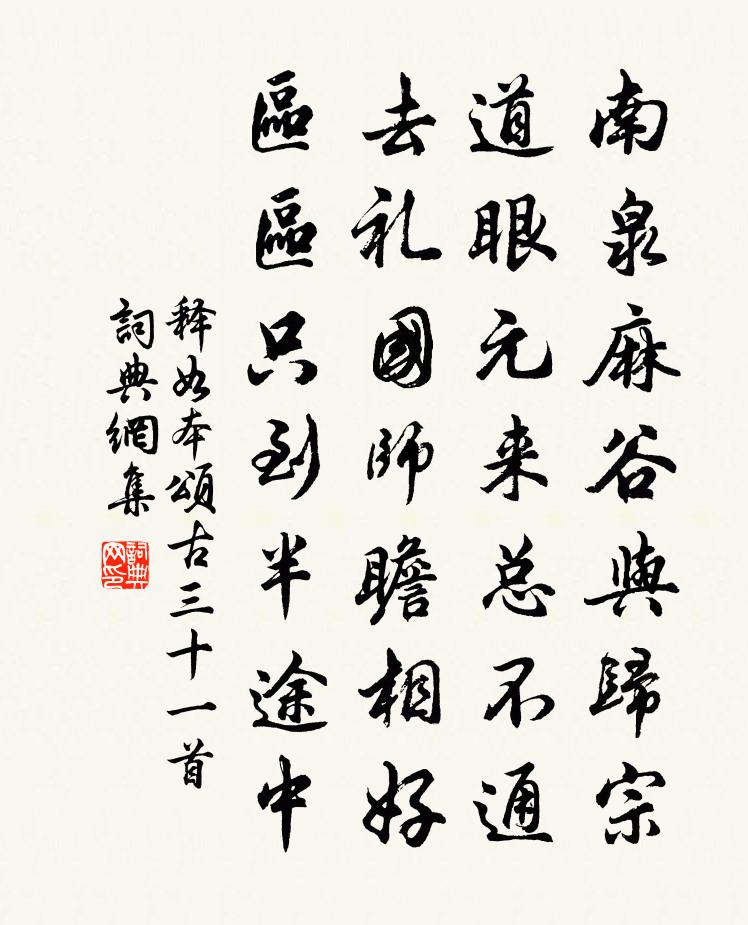 南泉麻谷與歸宗
道眼元来总不通
去礼國師瞻相好
區區只到半途中
释如本頌古三十一首
詞典網集
詞典
网印